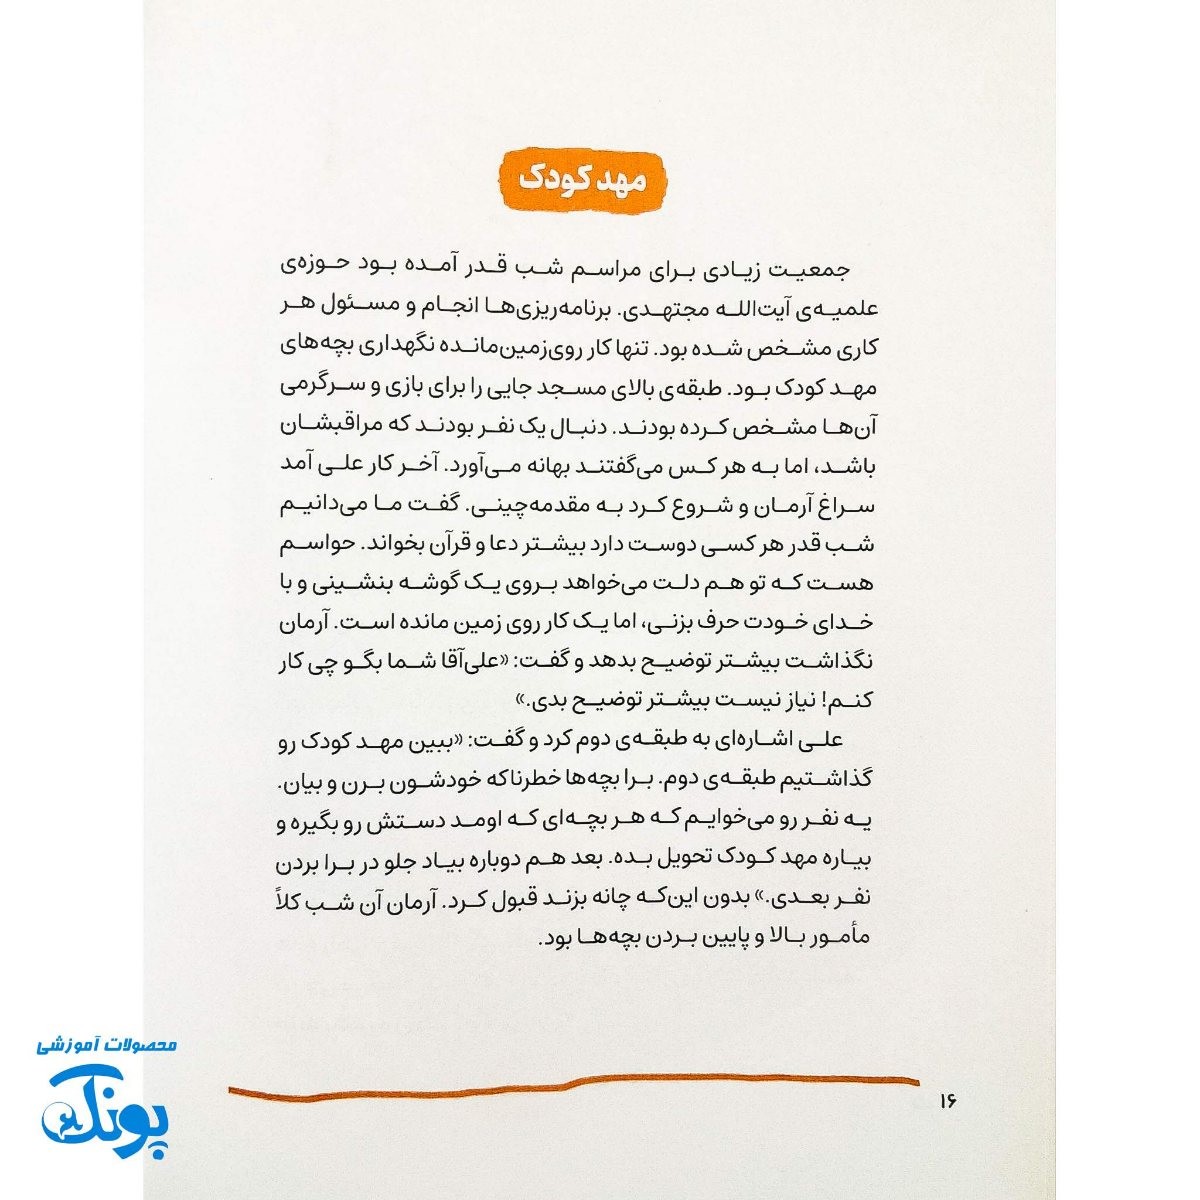 مهد کودک
جمعیت زیادی برای مراسم شب قدر آمده بود حوزه‌ی
علمیه‌ی آیت‌الله مجتهدی. برنامه‌ریزی‌ها انجام و مسئول هر
کاری مشخص شده بود. تنها کار روی‌زمین‌مانده نگهداری بچه‌های
مهد کودک بود. طبقه‌ی بالای مسجد جایی را برای بازی و سرگرمی
آن‌ها مشخص کرده بودند. دنبال یک نفر بودند که مراقبشان
باشد، اما به هر کس می‌گفتند بهانه می‌آورد. آخر کار علی آمد
سراغ آرمان و شروع کرد به مقدمه‌چینی. گفت ما می‌دانیم
شب قدر هر کسی دوست دارد بیشتر دعا و قرآن بخواند. حواسم
هست که تو هم دلت می‌خواهد بروی یک گوشه بنشینی و با
خدای خودت حرف بزنی، اما یک کار روی زمین مانده است. آرمان
نگذاشت بیشتر توضیح بدهد و گفت: «علی‌آقا شما بگو چی کار
کنم! نیاز نیست بیشتر توضیح بدی.»
علی اشاره‌ای به طبقه‌ی دوم کرد و گفت: «ببین مهد کودک رو
گذاشتیم طبقه‌ی دوم. برا بچه‌ها خطرناکه خودشون برن و بیان.
یه نفر رو می‌خوایم که هر بچه‌ای که اومد دستش رو بگیره و
بیاره مهد کودک تحویل بده. بعد هم دوباره بیاد جلو در برا بردن
نفر بعدی.» بدون این‌که چانه بزند قبول کرد. آرمان آن شب کلاً
مأمور بالا و پایین بردن بچه‌ها بود.
۱۶
محصولات آموزشی
پونک